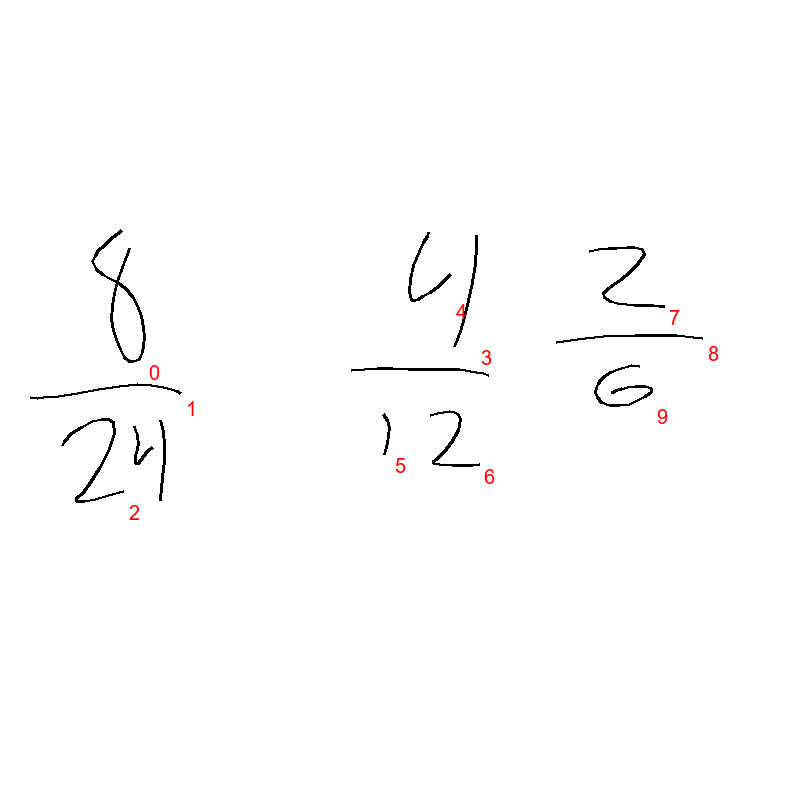 8/24 4/12 2/6
0 1 2 3 4 5 6 7 8 9